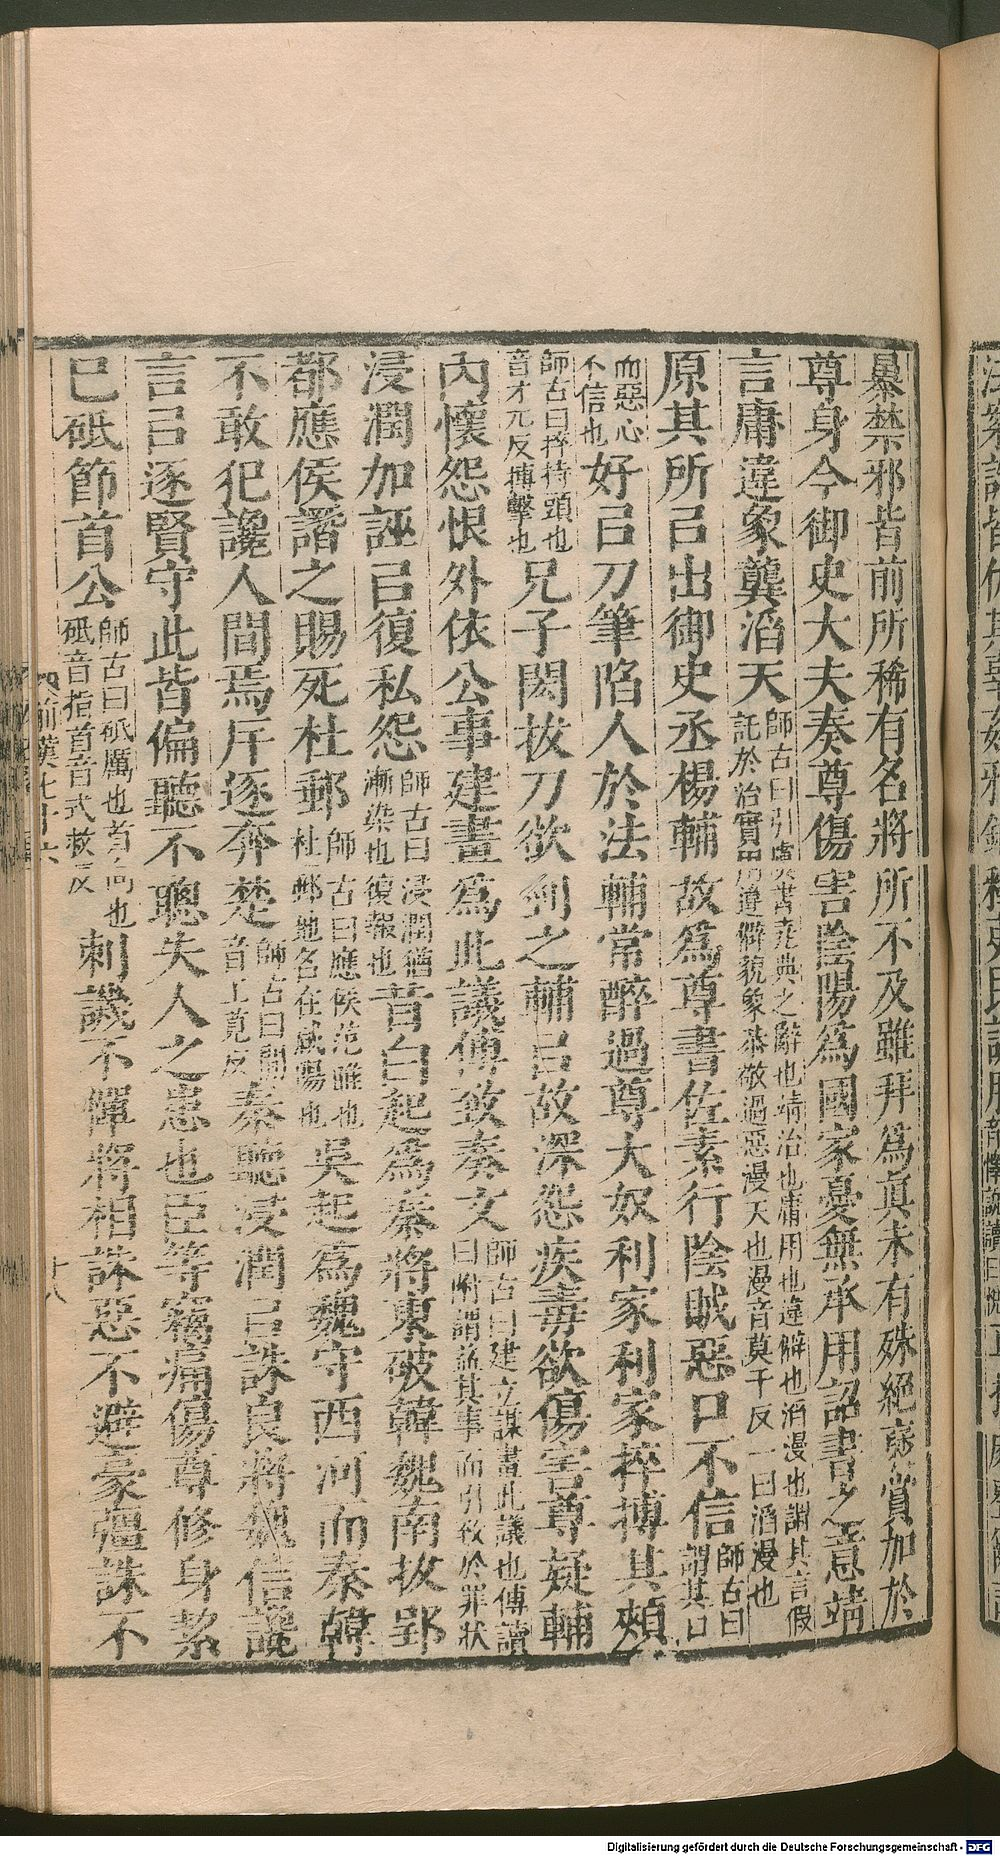 㬥禁邪皆前所稀有名將所不及雖拜爲眞未有殊絕襃賞加於
尊身今御史大夫奏尊傷害陰陽爲國家憂無承用詔書之意靖
言庸違象龔滔天師古曰引虞書堯典之辭也靖治也庸用也違僻也滔漫也謂其言假託於治實用違僻貌象恭敬過惡漫天也漫音莫干反一曰滔漫也
原其所㠯出御史丞楊輔故爲尊書佐素行陰賊惡口不信師古曰謂其口
而惡心不信也好㠯刀筆陷人於法輔常醉過尊大奴利家利家捽搏其頰
師古曰捽持頭也音才兀反搏擊也兄子閎拔刀欲剄之輔㠯故深怨疾毒欲傷害尊疑輔
內懷怨恨外依公事建畫爲此議傅致奏文師古曰建立謀畫此議也傅讀曰附謂益其事而引致於罪狀
浸潤加誣㠯復私怨師古曰浸潤猶漸染也復報也昔白起爲秦將東破韓魏南拔郢
都應侯譖之賜死杜郵師古曰應侯范雎也杜郵地名在咸陽也吳起爲魏守西河而秦韓
不敢犯讒人閒焉斥逐奔楚師古曰閒音工莧反秦聽浸潤㠯誅良將魏信讒
言㠯逐賢守此皆偏聽不聰失人之患也臣等竊痛傷尊修身絜
已砥節首公師古曰砥厲也首向也砥音指首音式救反刺譏不憚將相誅惡不避豪彊誅不
前漢七十六
十八
Digitalisierung gefördert durch die Deutsche Forschungsgemeinschaft - DFG